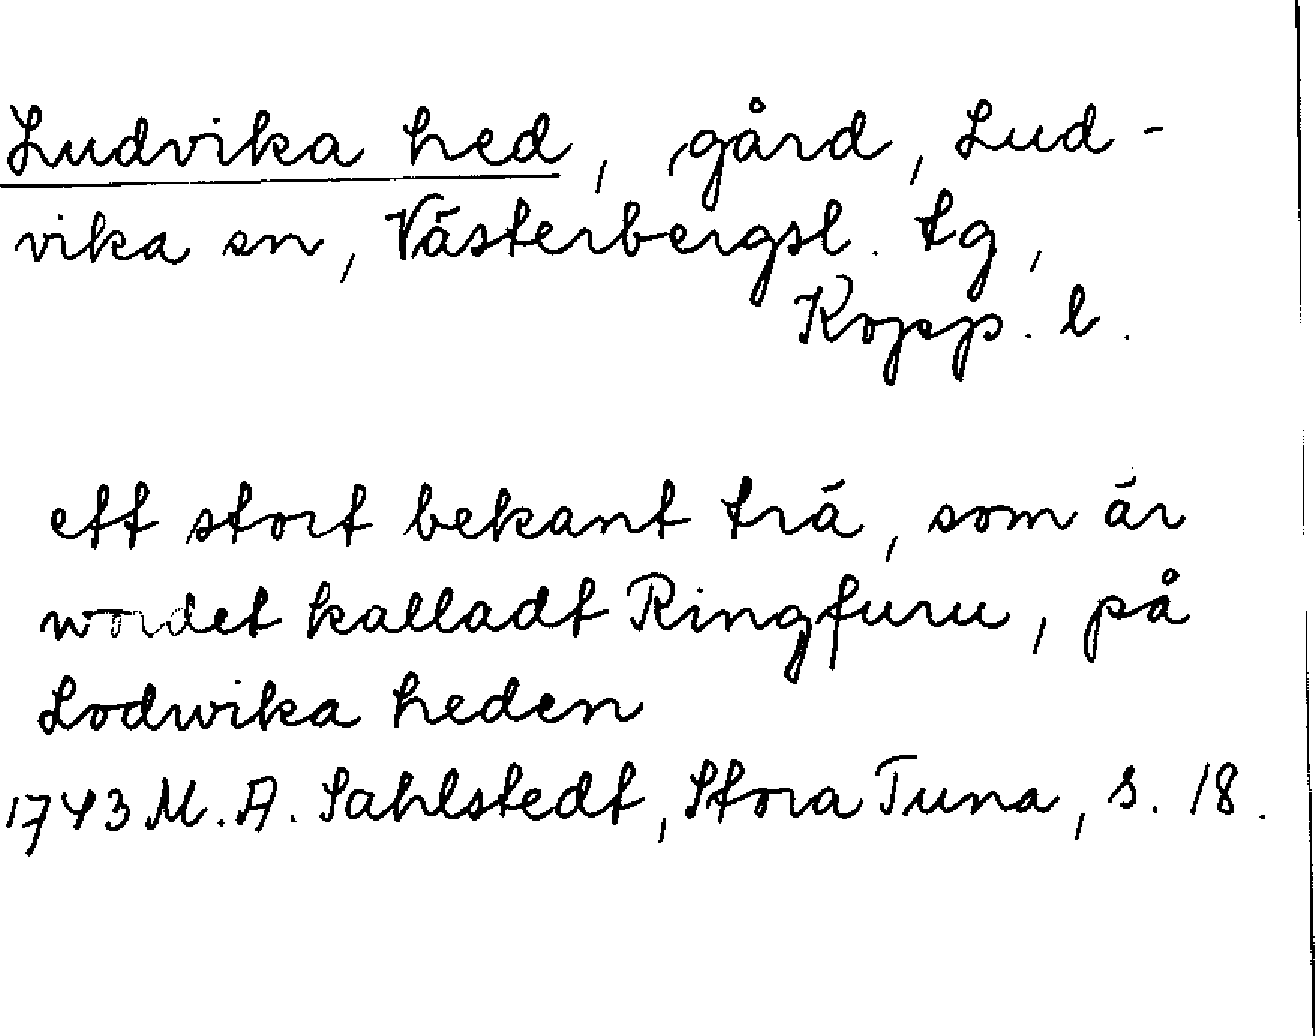 Ludvika hed, gård, Lud-
vika sn, Västerbergsl. tg,
Kopp. l.
ett stort bekant trä, som är
wordet kalladt Ringfuru, på
Lodwika heden
1743 M. A. Sahlstedt, Stora Tuna, s. 18.